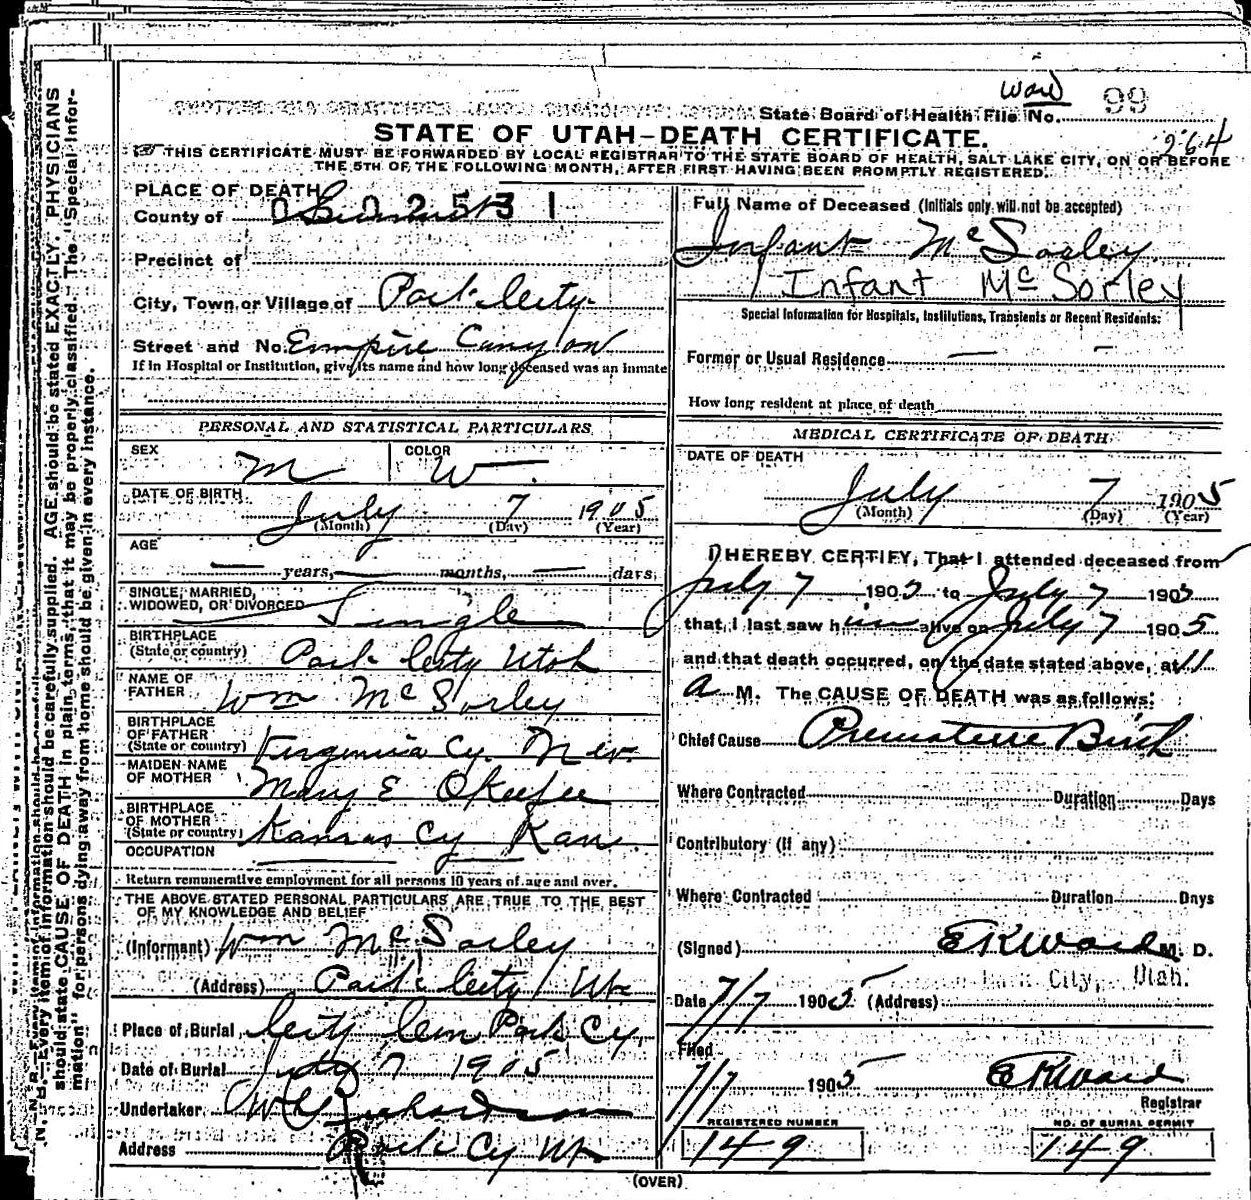 Ward 99
State Board of Health File No.
STATE OF UTAH—DEATH CERTIFICATE.
264
THIS CERTIFICATE MUST BE FORWARDED BY LOCAL REGISTRAR TO THE STATE BOARD OF HEALTH, SALT LAKE CITY, ON OR BEFORE
THE 5TH OF THE FOLLOWING MONTH, AFTER FIRST HAVING BEEN PROMPTLY REGISTERED.
PLACE OF DEATH
County of Summit 0502531
Precinct of
City, Town or Village of Park City
Street and No. Empire Canyon
If in Hospital or Institution, give its name and how long deceased was an inmate
PERSONAL AND STATISTICAL PARTICULARS
SEX M COLOR W
DATE OF BIRTH July 7 1905
(Month) (Day) (Year)
AGE
— years, — months, — days.
SINGLE, MARRIED,
WIDOWED, OR DIVORCED Single
BIRTHPLACE
(State or country) Park City Utah
NAME OF
FATHER Wm McSorley
BIRTHPLACE
OF FATHER
(State or country) Virginia Cy. Nev.
MAIDEN NAME
OF MOTHER Mary E OKeefe
BIRTHPLACE
OF MOTHER
(State or country) Kansas Cy Kan.
OCCUPATION
Return remunerative employment for all persons 10 years of age and over.
THE ABOVE STATED PERSONAL PARTICULARS ARE TRUE TO THE BEST
OF MY KNOWLEDGE AND BELIEF
(Informant) Wm McSorley
(Address) Park City Ut
Place of Burial City Cem Park Cy
Date of Burial July 7 1905
Undertaker W Richardson
Address Park Cy Ut
Full Name of Deceased (Initials only will not be accepted)
Infant McSorley
Infant McSorley
Special Information for Hospitals, Institutions, Transients or Recent Residents:
Former or Usual Residence — —
How long resident at place of death
MEDICAL CERTIFICATE OF DEATH
DATE OF DEATH
July 7 1905
(Month) (Day) (Year)
I HEREBY CERTIFY, That I attended deceased from
July 7 1905 to July 7 1905
that I last saw him alive on July 7 1905
and that death occurred, on the date stated above, at 11
a M. The CAUSE OF DEATH was as follows:
Chief Cause Premature Birth
Where Contracted Duration Days
Contributory (if any)
Where Contracted Duration Days
(Signed) EKWard M. D.
Date 7/7 1905 (Address) Park City, Utah.
Filed
7/7 1905 EKWard
Registrar
REGISTERED NUMBER
149
NO. OF BURIAL PERMIT
149
(OVER)
N. B.—Every item of information should be carefully supplied. AGE should be stated EXACTLY. PHYSICIANS
should state CAUSE OF DEATH in plain terms, that it may be properly classified. The "Special Infor-
mation" for persons dying away from home should be given in every instance.